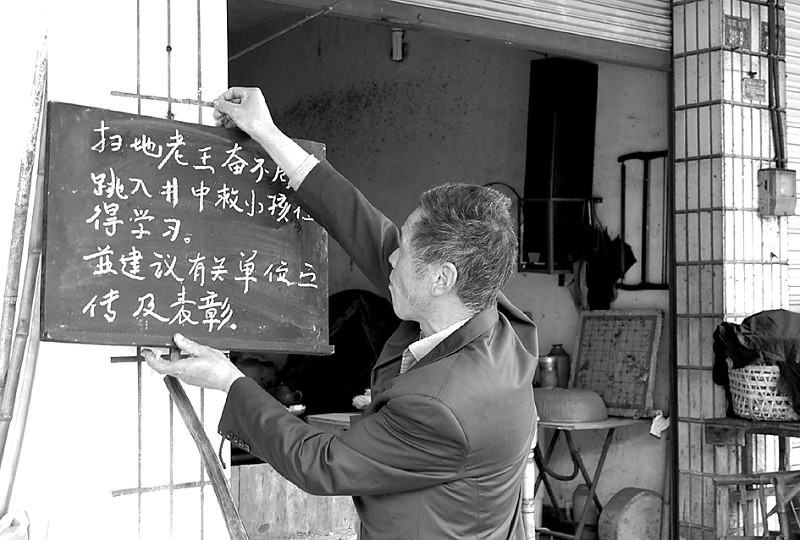 扫地老王奋不
跳入井中救小孩
得学习。
並建议有关单位
传及表彰